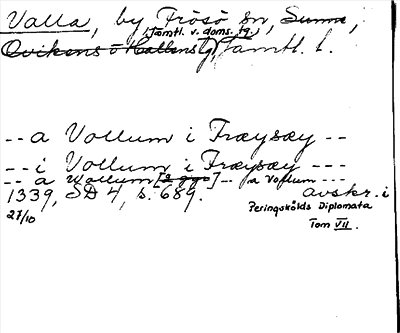 Valla, by Frösö sn, Sunne,
(Jämtl. v. doms. tg.)
Ovikens o Hallens tg), Jämtl. l.
-- a Vollum i Fræysæy --
-- i Vollum i Fræysæy ---
-- a Wollum [2 ggr] -- a Vollum ---
1339, SD 4, s. 689. avskr. i
27/10 Peringskölds Diplomata
Tom VII.